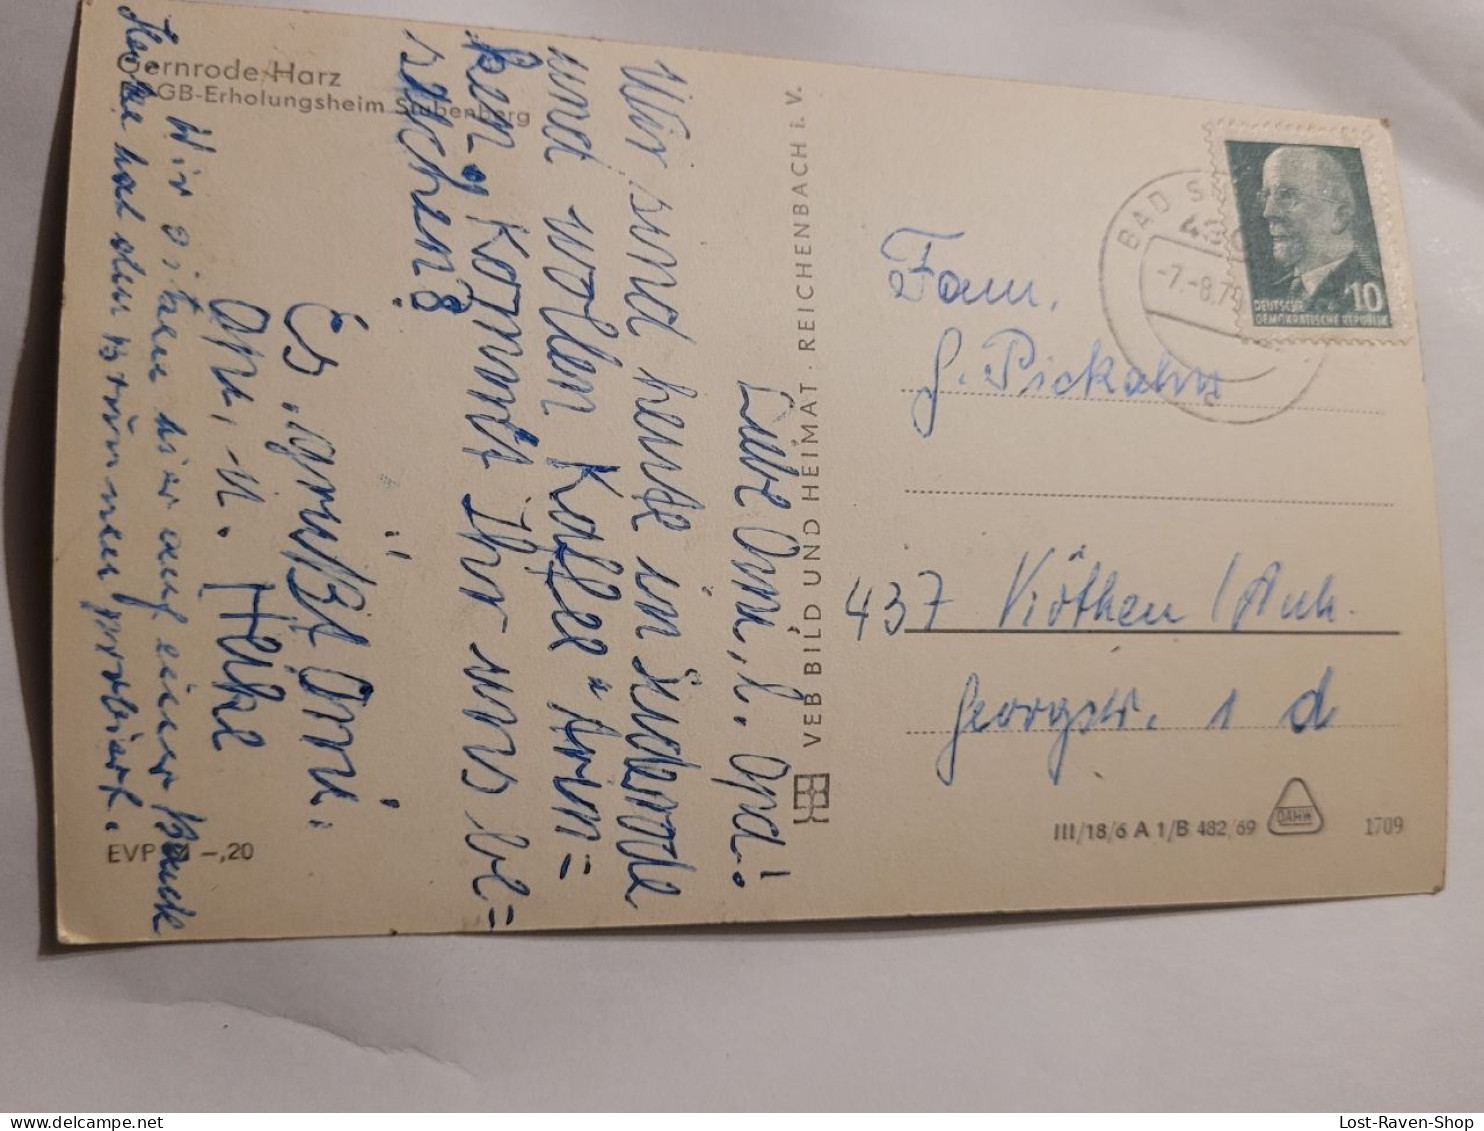 Gernrode/Harz
GB-Erholungsheim Stubenberg
Liebe Omi, l. Opa!
Wir sind heute in Suderode
und wollen Kaffee "trin=
ken, Kommt Ihr uns be=
suchen?
Es grüßt Omi.
Opi, u. Heike
Wir sitzen hier auf einer Bank
Heike hat den Brunnen probiert.
EVP -,20
VEB BILD UND HEIMAT · REICHENBACH i. V.
BAD S
-7.-8.7
10
DEUTSCHE
DEMOKRATISCHE REPUBLIK
Fam.
G. Pickahn
437 Köthen /Anh.
Georgstr. 1 d
III/18/6 A 1/B 482/69
DAHW
1709
Lost-Raven-Shop